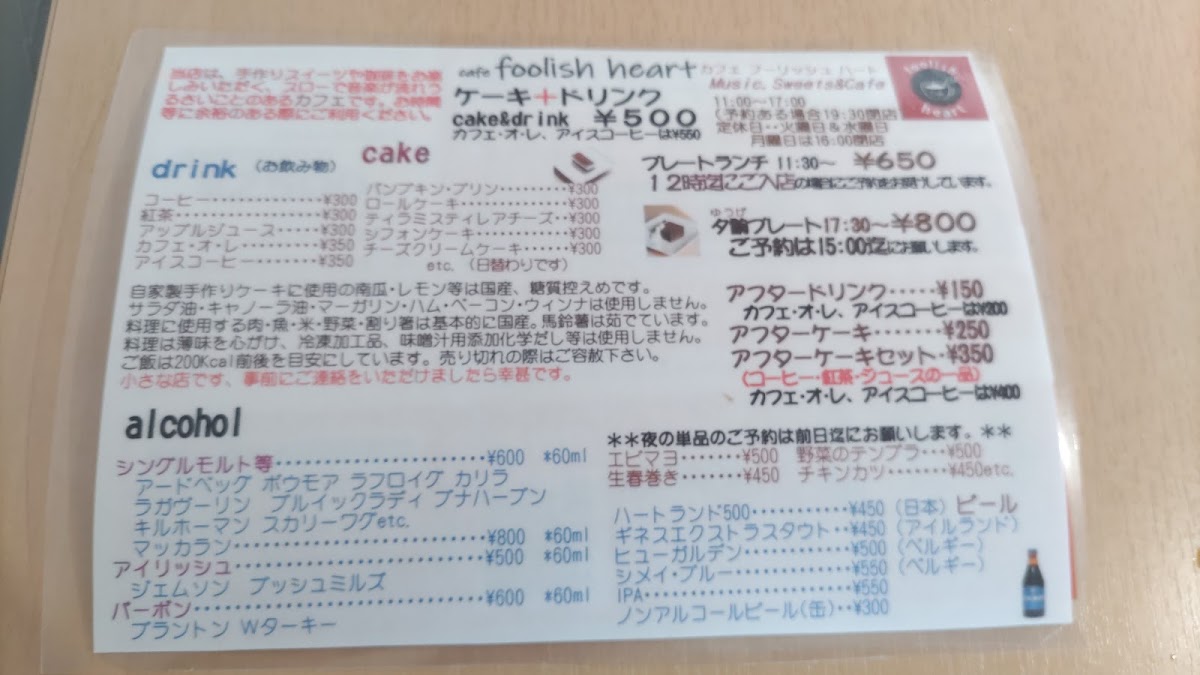 当店は、手作りスイーツや珈琲をお楽
しみいただく、スローで音楽が流れう
るさいことのあるカフェです。お時間
等に余裕のある際にご利用ください。
cafe foolish heart カフェ フーリッシュ ハート
Music, Sweets&Cafe
foolish heart
ケーキ+ドリンク
cake&drink ¥500
カフェ・オ・レ、アイスコーヒーは¥550
11:00～17:00
(予約ある場合19:30閉店
定休日・・火曜日&水曜日
月曜日は16:00閉店
プレートランチ 11:30～ ¥650
12時迄にご入店の場合にご予約をお願いしています。
ゆうげ
夕餉プレート17:30～¥800
ご予約は15:00迄にお願いします。
drink (お飲み物)
コーヒー・・・・・・・・・・・¥300
紅茶・・・・・・・・・・・・・¥300
アップルジュース・・・・・¥300
カフェ・オ・レ・・・・・・・¥350
アイスコーヒー・・・・・・・¥350
cake
パンプキン・プリン・・・・・・・・・¥300
ロールケーキ・・・・・・・・・・・・¥300
ティラミスティレアチーズ・・¥300
シフォンケーキ・・・・・・・・・・¥300
チーズクリームケーキ・・・・・¥300
etc. (日替わりです)
自家製手作りケーキに使用の南瓜・レモン等は国産、糖質控えめです。
サラダ油・キャノーラ油・マーガリン・ハム・ベーコン・ウィンナは使用しません。
料理に使用する肉・魚・米・野菜・割り箸は基本的に国産。馬鈴薯は茹でています。
料理は薄味を心がけ、冷凍加工品、味噌汁用添加化学だし等は使用しません。
ご飯は200Kcal前後を目安にしています。売り切れの際はご容赦下さい。
小さな店です、事前にご連絡をいただけましたら幸甚です。
アフタードリンク・・・・・¥150
カフェ・オ・レ、アイスコーヒーは¥200
アフターケーキ・・・・・・・¥250
アフターケーキセット・¥350
(コーヒー・紅茶・ジュースの一品)
カフェ・オ・レ、アイスコーヒーは¥400
alcohol
シングルモルト等・・・・・・・・・・・・・・・・・・¥600 *60ml
アードベッグ ボウモア ラフロイグ カリラ
ラガヴーリン ブルイックラディ ブナハーブン
キルホーマン スカリーワグetc.
マッカラン・・・・・・・・・・・・・・・・・・・・¥800 *60ml
アイリッシュ・・・・・・・・・・・・・・・・・・・¥500 *60ml
ジェムソン ブッシュミルズ
バーボン・・・・・・・・・・・・・・・・・・・・・・¥600 *60ml
ブラントン Wターキー
**夜の単品のご予約は前日迄にお願いします。**
エビマヨ・・・・・・・¥500 野菜のテンプラ・・・¥500
生春巻き・・・・・・・¥450 チキンカツ・・・・・・・¥450etc.
ビール
ハートランド500・・・・・・・・・・・¥450 (日本)
ギネスエクストラスタウト・・¥450 (アイルランド)
ヒューガルデン・・・・・・・・・・・¥500 (ベルギー)
シメイ・ブルー・・・・・・・・・・・¥550 (ベルギー)
IPA・・・・・・・・・・・・・・・・・・・・¥550
ノンアルコールビール(缶)・・¥300